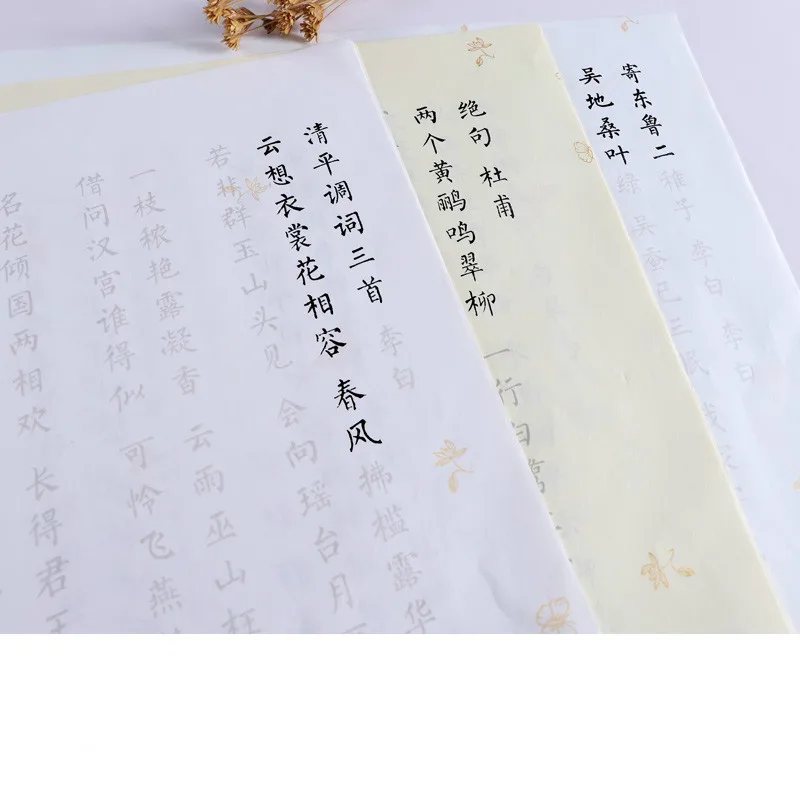 寄东鲁二稚子 李白 李白
吴地桑叶绿 吴蚕已三眠 我家
绝句 杜甫
两个黄鹂鸣翠柳 一行白鹭
清平调词三首 李白
云想衣裳花相容 春风拂槛露华
若非群玉山头见 会向瑶台月
一枝秾艳露凝香 云雨巫山枉
借问汉宫谁得似 可怜飞燕
名花倾国两相欢 长得君王